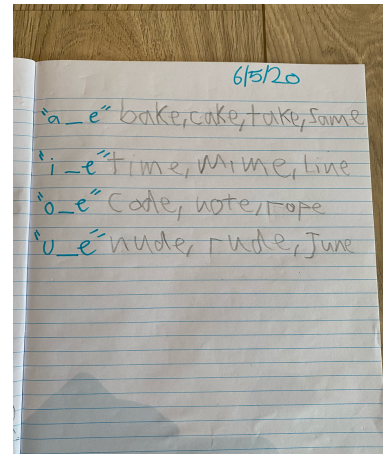 6/5/20
"a_e" bake, cake, take, same
"i_e" time, mime, line
"o_e" code, note, rope
"u_e" nude, rude, June